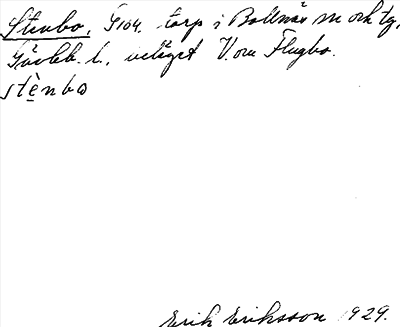 Stenbo, G104. torp i Bollnäs sn och tg,
Gävleb. l., beläget V. om Flugbo.
stènbo
Erik Eriksson 1929.